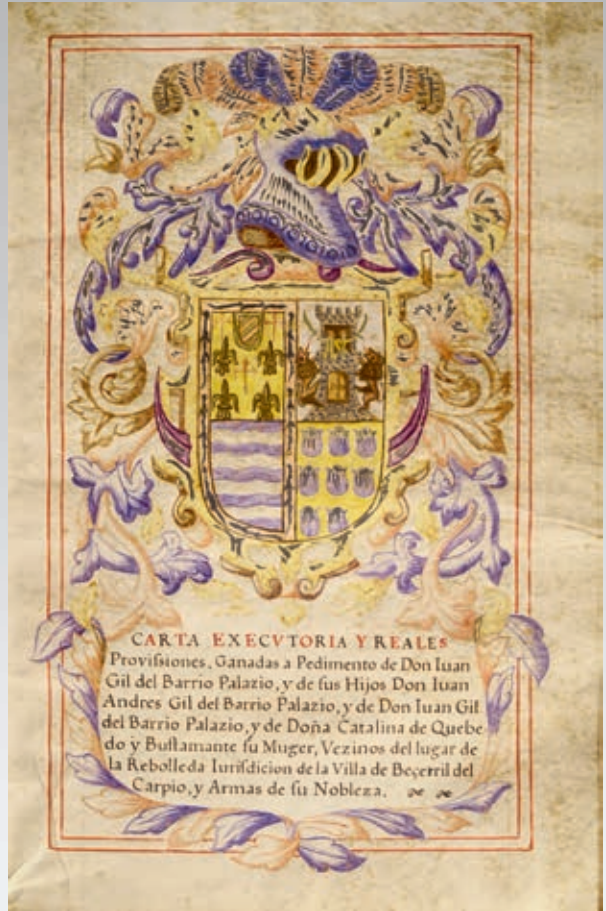 CARTA EXECVTORIA Y REALES
Proviſsiones, Ganadas a Pedimento de Don Iuan
Gil del Barrio Palazio, y de ſus Hijos Don Iuan
Andres Gil del Barrio Palazio, y de Don Iuan Gil
del Barrio Palazio, y de Doña Catalina de Quebe
do y Buſtamante ſu Muger, Vezinos del lugar de
la Rebolleda Iuriſdicion de la Villa de Beçerril del
Carpio, y Armas de ſu Nobleza.